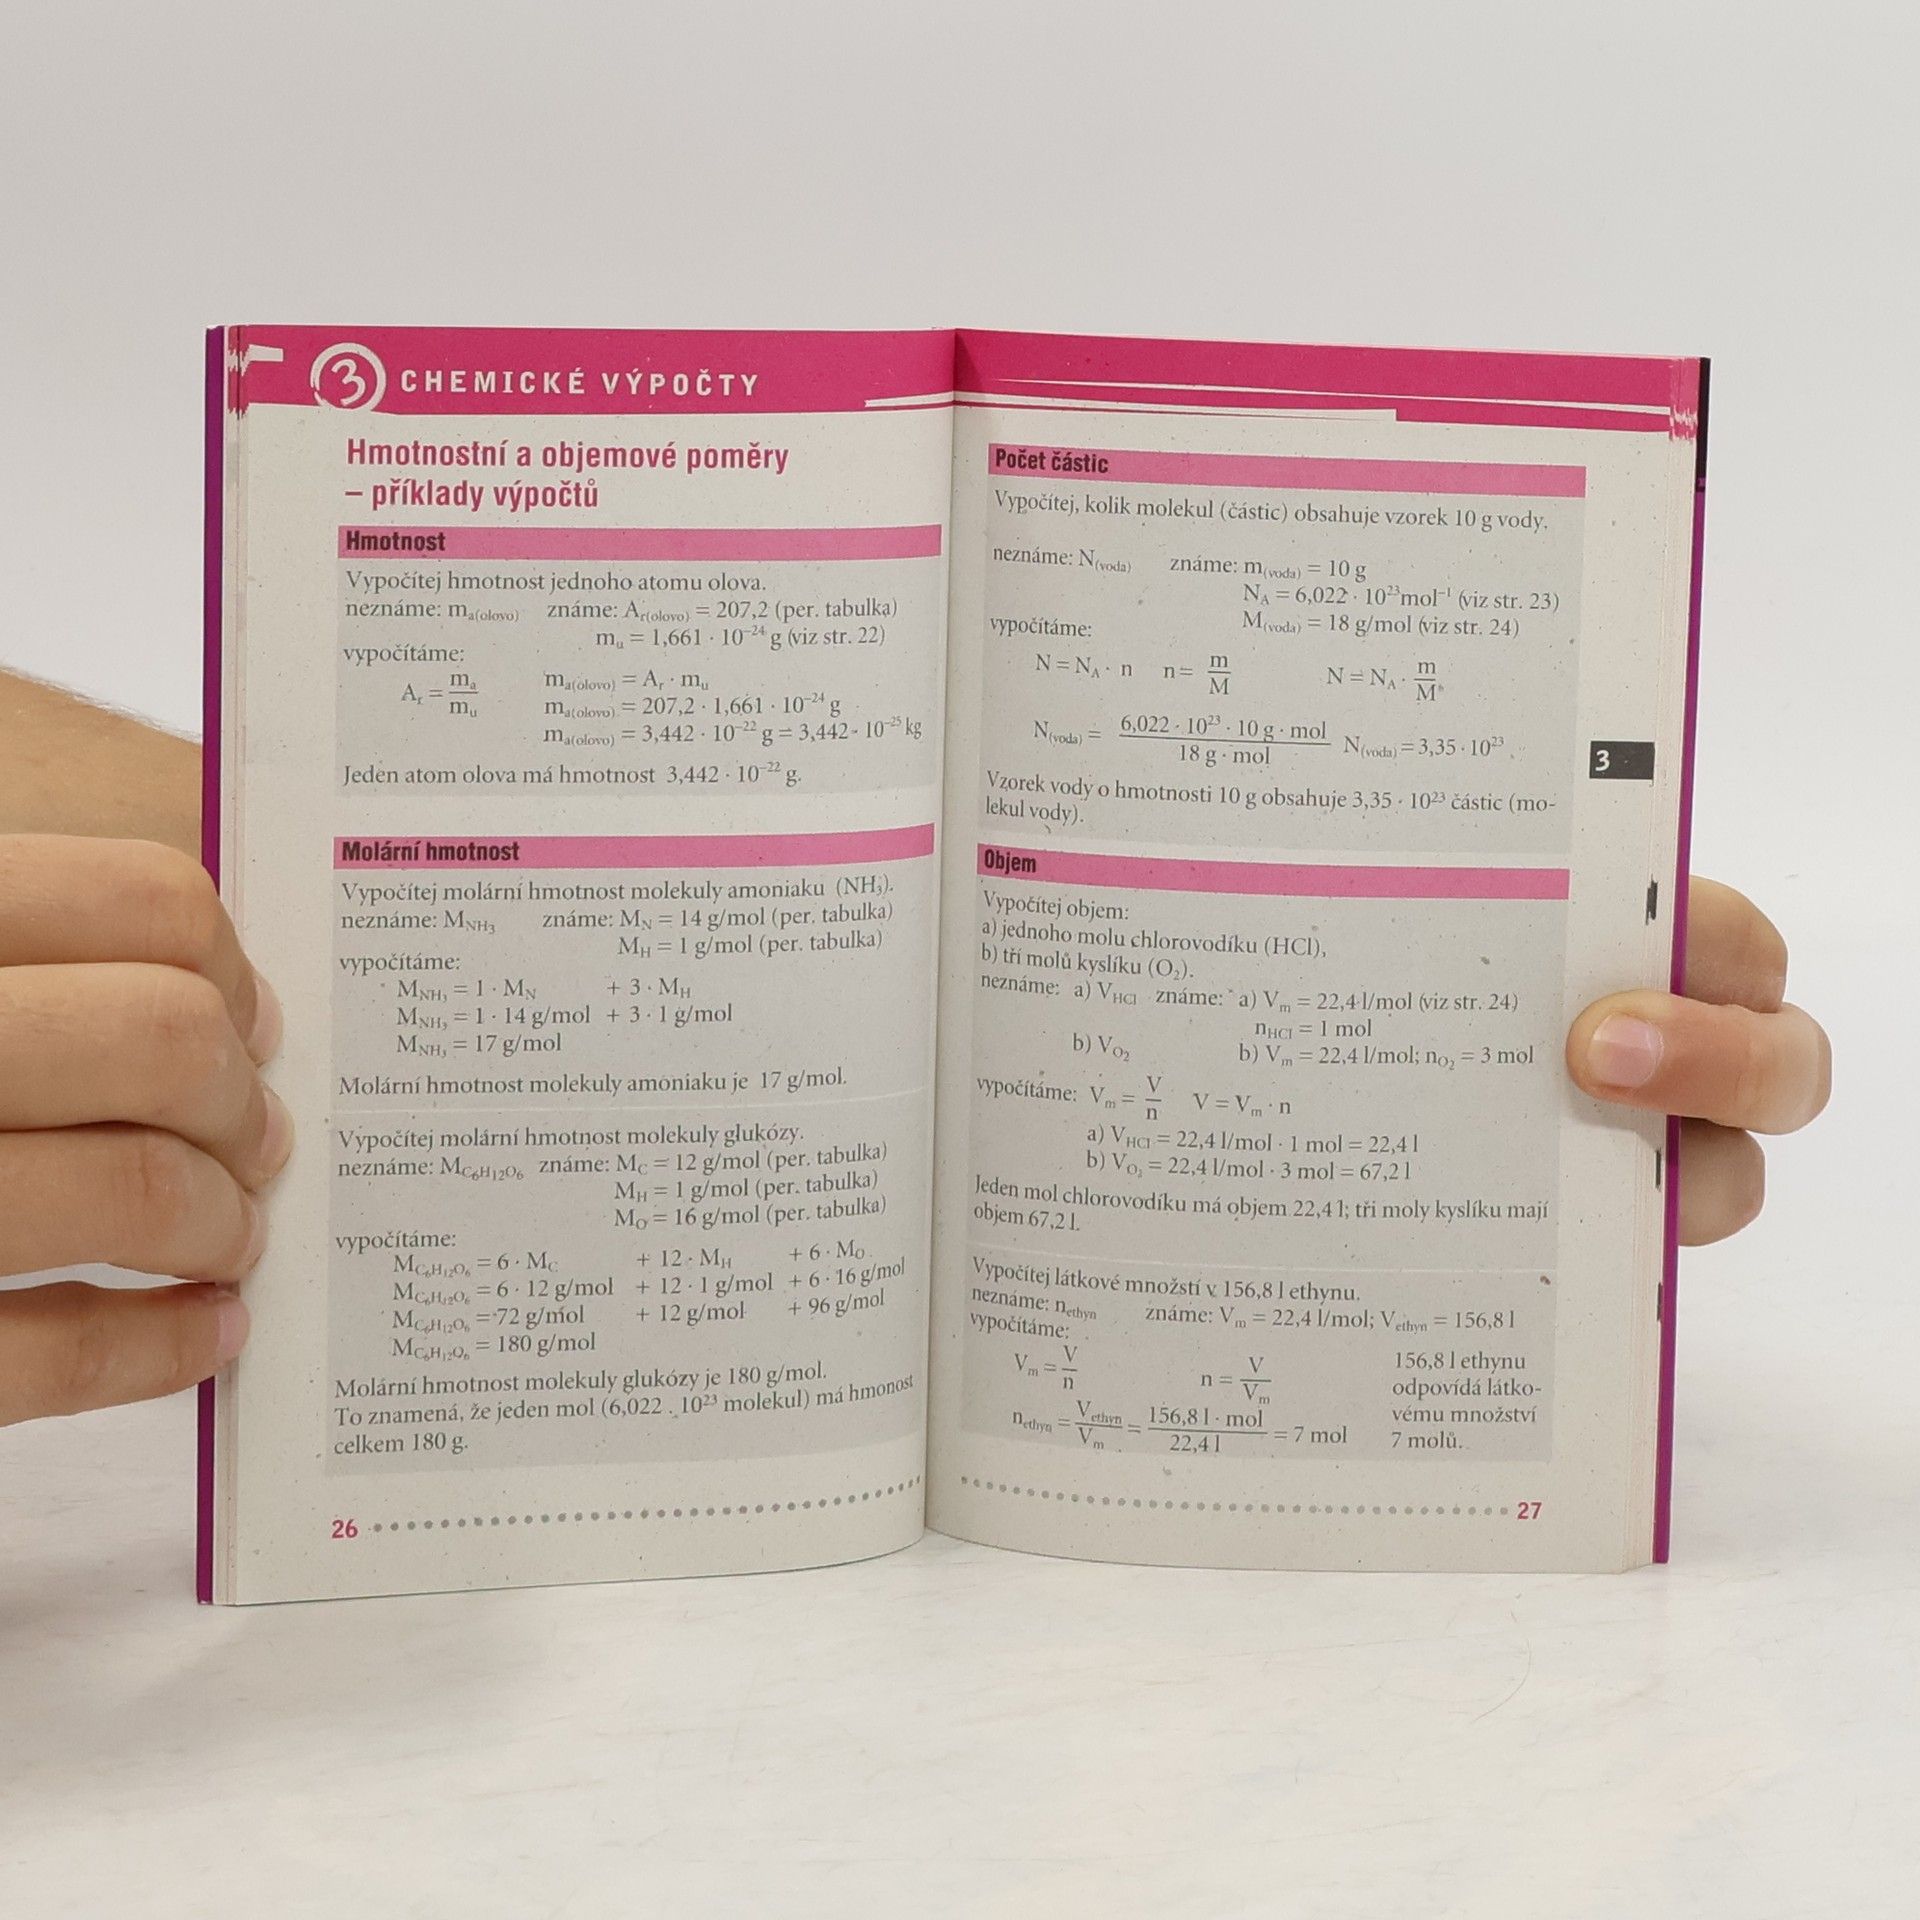 3 CHEMICKÉ VÝPOČTY
Hmotnostní a objemové poměry
– příklady výpočtů
Hmotnost
Vypočítej hmotnost jednoho atomu olova.
neznáme: ma(olovo) známe: Ar(olovo) = 207,2 (per. tabulka)
mu = 1,661 · 10⁻²⁴ g (viz str. 22)
vypočítáme:
Ar = ma/mu ma(olovo) = Ar · mu
ma(olovo) = 207,2 · 1,661 · 10⁻²⁴ g
ma(olovo) = 3,442 · 10⁻²² g = 3,442 · 10⁻²⁵ kg
Jeden atom olova má hmotnost 3,442 · 10⁻²² g.
Molární hmotnost
Vypočítej molární hmotnost molekuly amoniaku (NH₃).
neznáme: MNH₃ známe: MN = 14 g/mol (per. tabulka)
MH = 1 g/mol (per. tabulka)
vypočítáme:
MNH₃ = 1 · MN + 3 · MH
MNH₃ = 1 · 14 g/mol + 3 · 1 g/mol
MNH₃ = 17 g/mol
Molární hmotnost molekuly amoniaku je 17 g/mol.
Vypočítej molární hmotnost molekuly glukózy.
neznáme: MC₆H₁₂O₆ známe: MC = 12 g/mol (per. tabulka)
MH = 1 g/mol (per. tabulka)
MO = 16 g/mol (per. tabulka)
vypočítáme:
MC₆H₁₂O₆ = 6 · MC + 12 · MH + 6 · MO
MC₆H₁₂O₆ = 6 · 12 g/mol + 12 · 1 g/mol + 6 · 16 g/mol
MC₆H₁₂O₆ = 72 g/mol + 12 g/mol + 96 g/mol
MC₆H₁₂O₆ = 180 g/mol
Molární hmotnost molekuly glukózy je 180 g/mol.
To znamená, že jeden mol (6,022 . 10²³ molekul) má hmonost
celkem 180 g.
26
Počet částic
Vypočítej, kolik molekul (částic) obsahuje vzorek 10 g vody.
neznáme: N(voda) známe: m(voda) = 10 g
NA = 6,022 · 10²³mol⁻¹ (viz str. 23)
M(voda) = 18 g/mol (viz str. 24)
vypočítáme:
N = NA · n n = m/M N = NA · m/M
N(voda) = 6,022 · 10²³ · 10 g · mol/18 g · mol N(voda) = 3,35 · 10²³
Vzorek vody o hmotnosti 10 g obsahuje 3,35 · 10²³ částic (mo-
lekul vody).
3
Objem
Vypočítej objem:
a) jednoho molu chlorovodíku (HCl),
b) tří molů kyslíku (O₂).
neznáme: a) VHCl známe: a) Vm = 22,4 l/mol (viz str. 24)
nHCl = 1 mol
b) VO₂ b) Vm = 22,4 l/mol; nO₂ = 3 mol
vypočítáme: Vm = V/n V = Vm · n
a) VHCl = 22,4 l/mol · 1 mol = 22,4 l
b) VO₂ = 22,4 l/mol · 3 mol = 67,2 l
Jeden mol chlorovodíku má objem 22,4 l; tři moly kyslíku mají
objem 67,2 l.
Vypočítej látkové množstí v 156,8 l ethynu.
neznáme: nethyn známe: Vm = 22,4 l/mol; Vethyn = 156,8 l
vypočítáme:
Vm = V/n n = V/Vm
nethyn = Vethyn/Vm = 156,8 l · mol/22,4 l = 7 mol
156,8 l ethynu
odpovídá látko-
vému množství
7 molů.
27